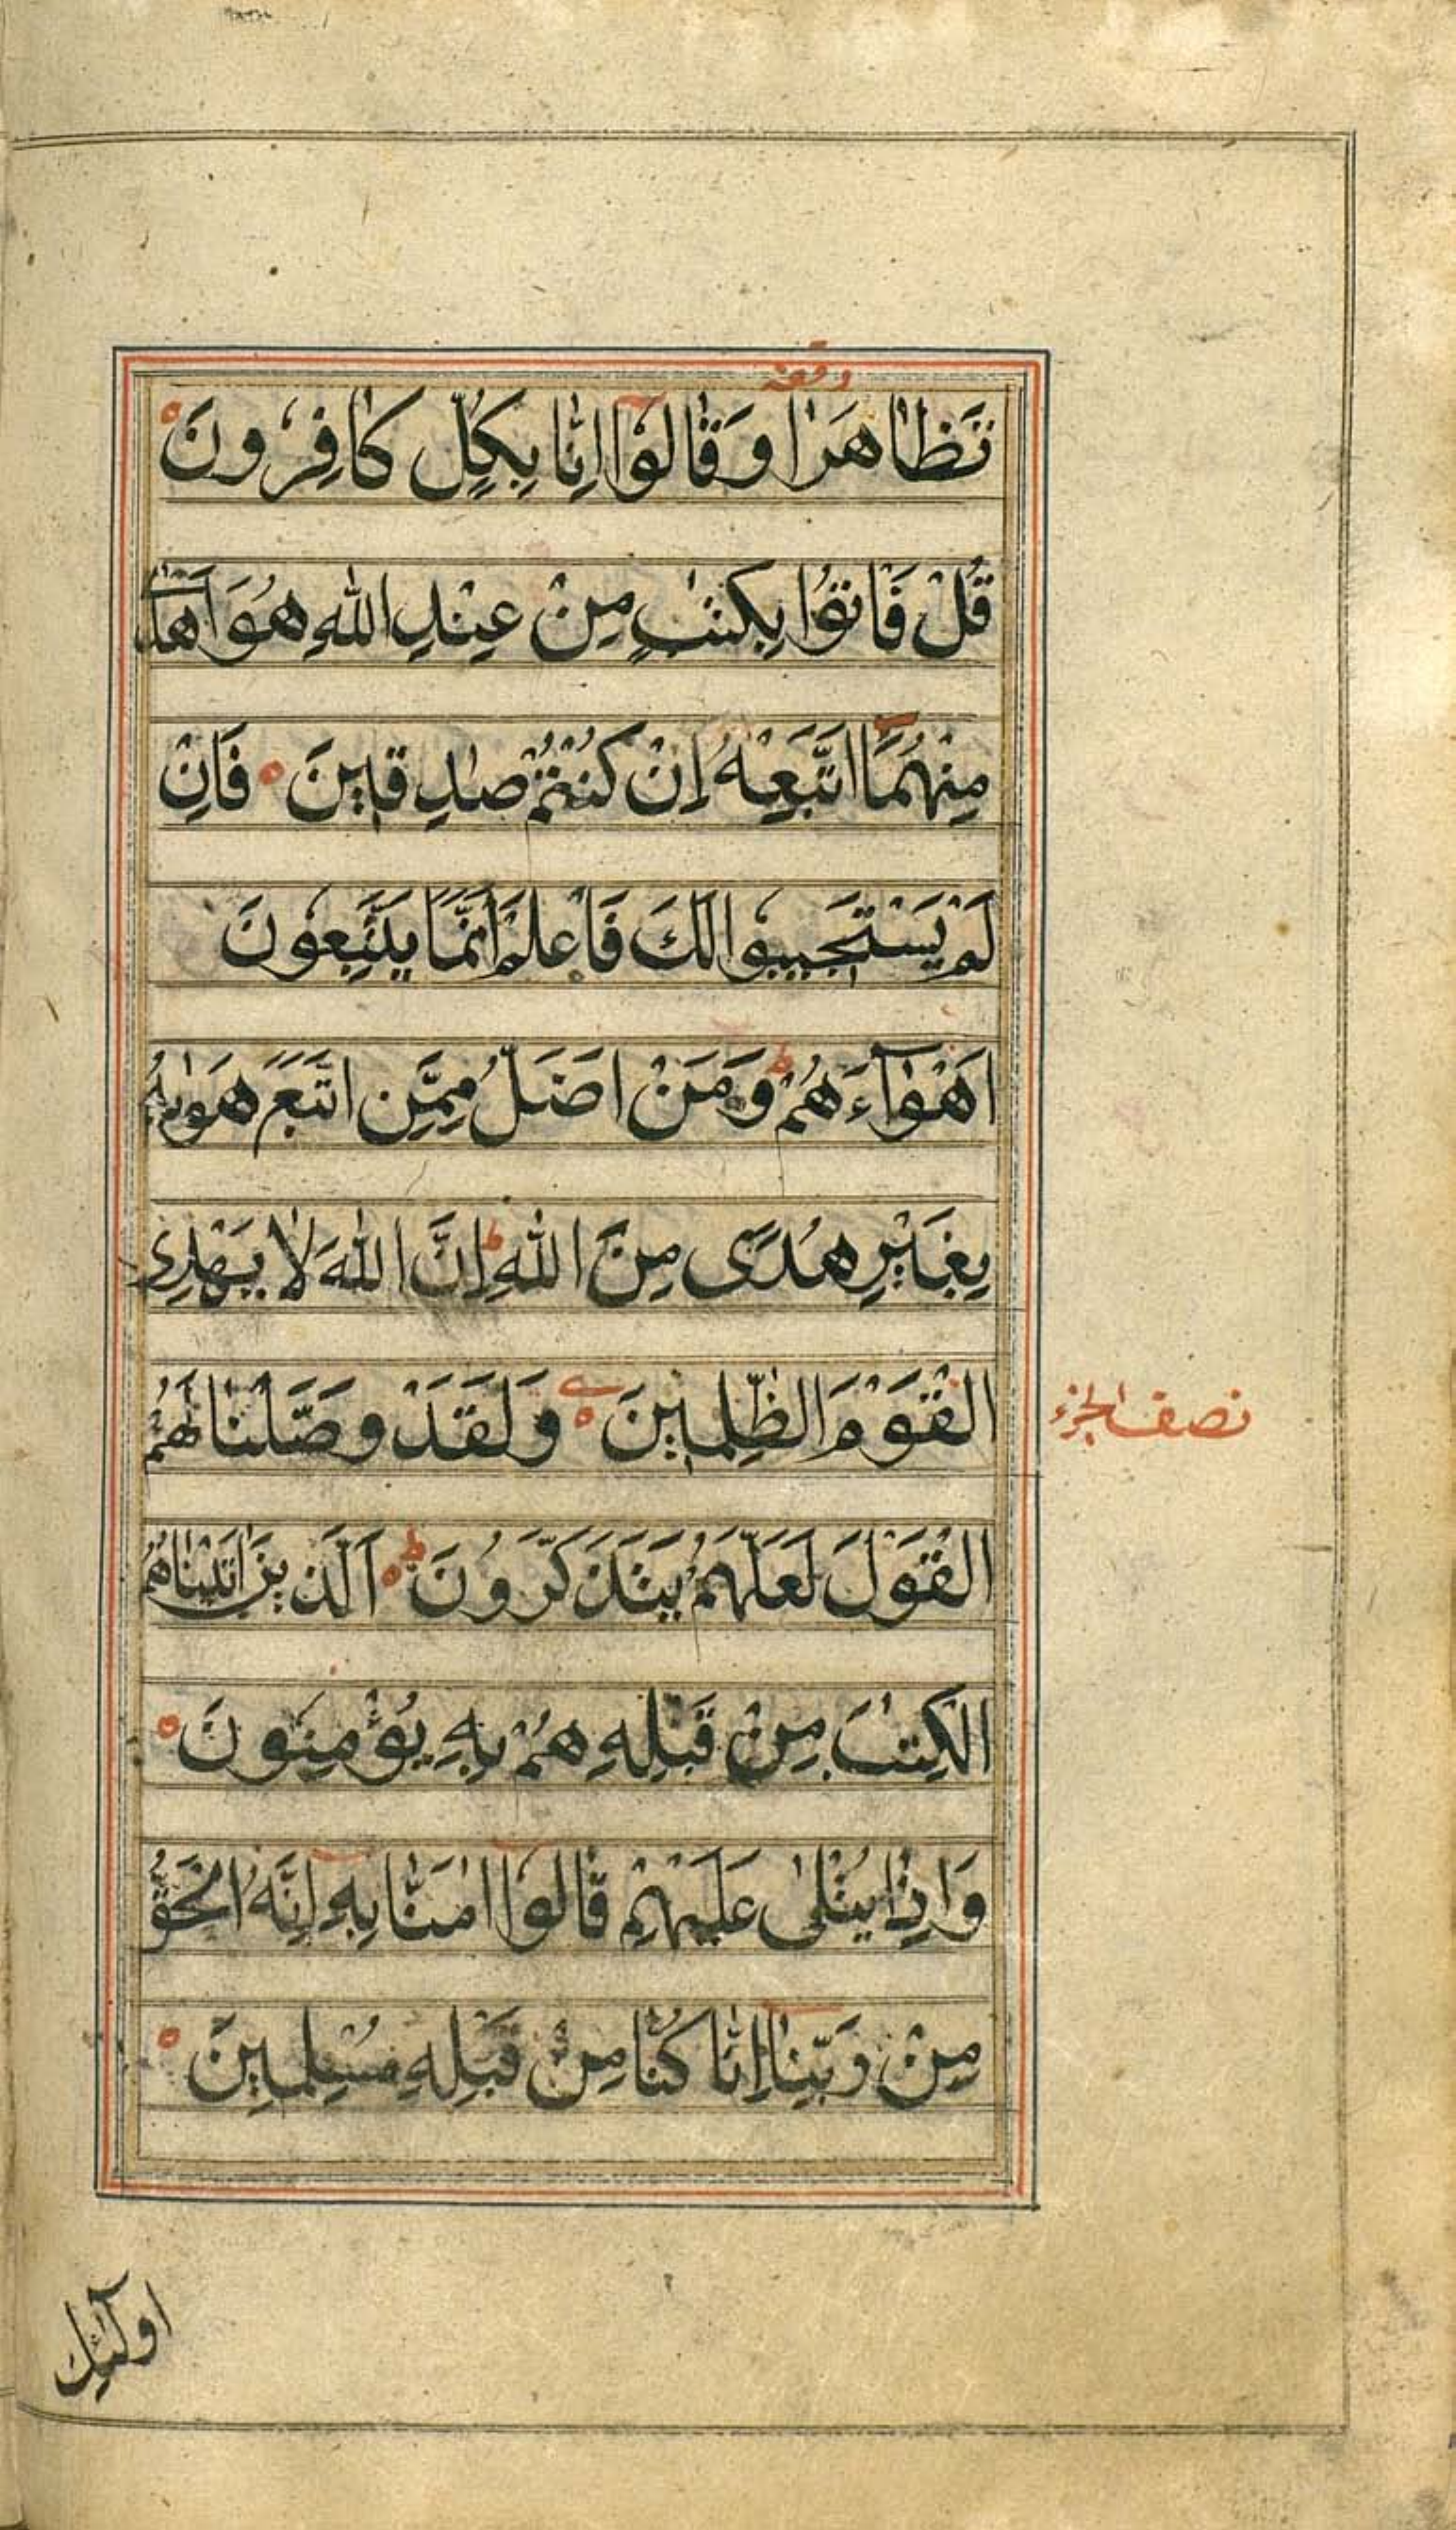 وقفه
تَظَاهَرَا وَقَالُوا اِنَّا بِكُلٍّ كَافِرُونَ
قُلْ فَاتُوْا بِكِتٰبٍ مِنْ عِنْدِ اللّٰهِ هُوَ اَهْدٰى
مِنْهُمَا اَتَّبِعْهُ اِنْ كُنْتُمْ صٰدِقِينَ فَاِنْ
لَمْ يَسْتَجِيبُوا لَكَ فَاعْلَمْ اَنَّمَا يَتَّبِعُونَ
اَهْوَآءَهُمْ ط وَمَنْ اَضَلُّ مِمَّنِ اتَّبَعَ هَوٰىهُ
بِغَيْرِ هُدًى مِنَ اللّٰهِ ط اِنَّ اللّٰهَ لَا يَهْدِى
الْقَوْمَ الظّٰلِمِينَ وَلَقَدْ وَصَّلْنَا لَهُمُ
نصف الجزء
الْقَوْلَ لَعَلَّهُمْ يَتَذَكَّرُونَ ط اَلَّذِينَ اٰتَيْنَاهُمُ
الْكِتٰبَ مِنْ قَبْلِهِ هُمْ بِهِ يُؤْمِنُونَ
وَاِذَا يُتْلٰى عَلَيْهِمْ قَالُوا اٰمَنَّا بِهِ اِنَّهُ الْحَقُّ
مِنْ رَبِّنَا اِنَّا كُنَّا مِنْ قَبْلِهِ مُسْلِمِينَ
اولٰٓئِك